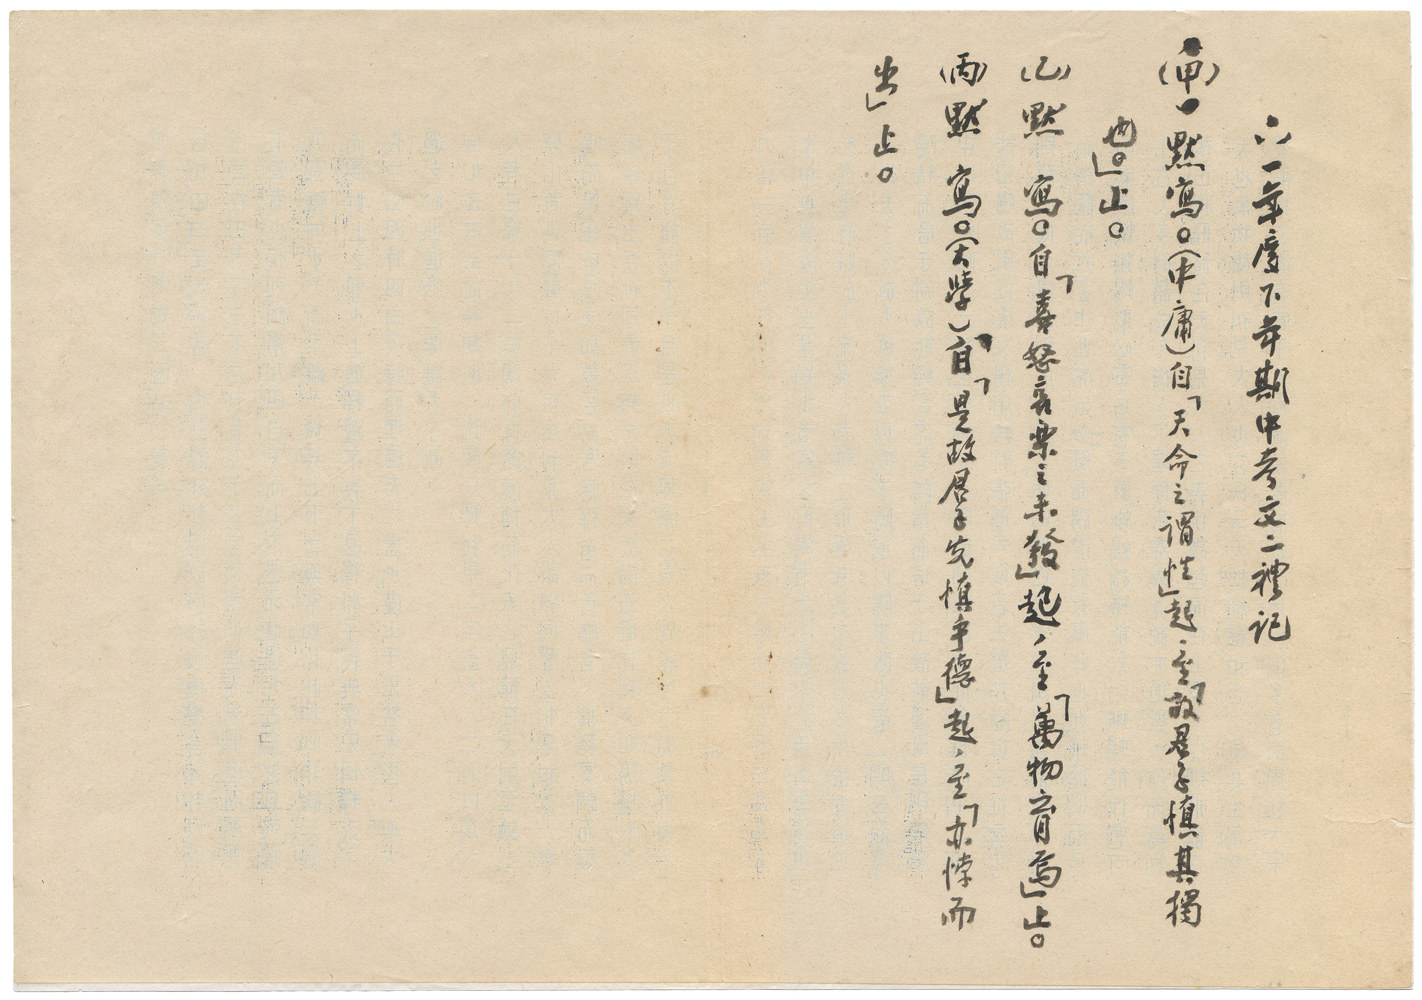 六一年度下年期中考文二禮記
(甲)默寫。(中庸)自「天命之謂性」起,至「故君子慎其獨
也。」止。
(乙)默寫。自「喜怒哀樂之未發」起,至「萬物育焉」止。
(丙)默寫。(大學)自「是故君子先慎乎德」起,至「亦悖而
出」止。